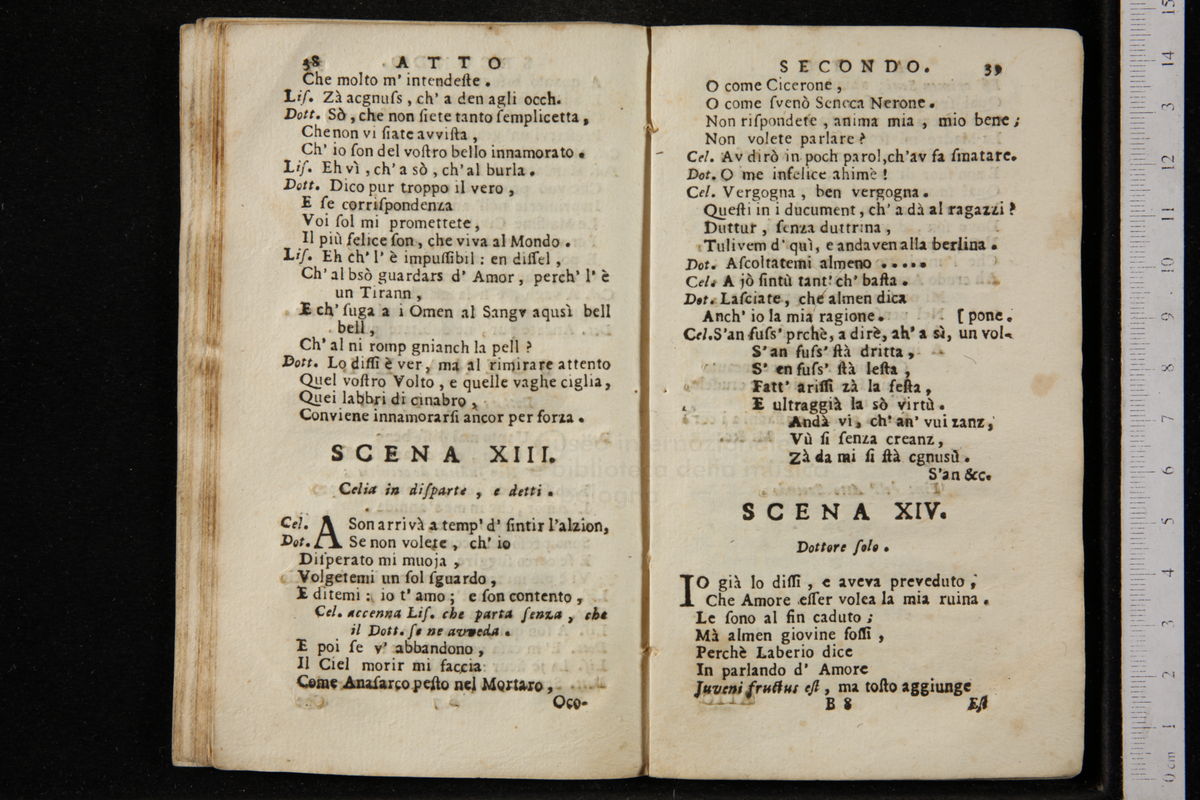 38 ATTO
Che molto m' intendeſte .
Liſ. Zà acgnuſs , ch' a den agli occh.
Dott. Sò , che non ſiete tanto ſemplicetta ,
Chenon vi ſiate avviſta ,
Ch' io ſon del voſtro bello innamorato .
Liſ. Eh vì , ch' a sò , ch' al burla .
Dott. Dico pur troppo il vero ,
E ſe corriſpondenza
Voi ſol mi promettete ,
Il più felice ſon , che viva al Mondo .
Liſ. Eh ch' l' è impuſſibil : en diſſel ,
Ch' al bsò guardars d' Amor , perch' l' è
un Tirann ,
E ch' fuga a i Omen al Sangv aqusì bell
bell ,
Ch' al ni romp gnianch la pell ?
Dott. Lo diſſi è ver , ma al rimirare attento
Quel voſtro Volto , e quelle vaghe ciglia ,
Quei labbri di cinabro ,
Conviene innamorarſi ancor per forza .
SCENA XIII.
Celia in diſparte , e detti .
Cel. A Son arrivà a temp' d' ſintir l'alzion,
Dot. Se non volete , ch' io
Diſperato mi muoja ,
Volgetemi un ſol ſguardo ,
E ditemi : io t' amo ; e ſon contento ,
Cel. accenna Liſ. che parta ſenza , che
il Dott. ſe ne avveda .
E poi ſe v' abbandono ,
Il Ciel morir mi faccia
Come Anaſarco peſto nel Mortaro ,
Oco-
SECONDO. 39
O come Cicerone ,
O come ſvenò Seneca Nerone .
Non riſpondete , anima mia , mio bene ;
Non volete parlare ?
Cel. Av dirò in poch parol,ch'av fa ſmatare.
Dot. O me infelice ahimè !
Cel. Vergogna , ben vergogna .
Queſti in i ducument , ch' a dà al ragazzi ?
Duttur , ſenza duttrina ,
Tulivem d' quì, e andaven alla berlina .
Dot. Aſcoltatemi almeno .....
Cel. A jò ſintù tant' ch' baſta .
Dot. Laſciate , che almen dica
Anch' io la mia ragione . [ pone .
Cel. S'an fuſs' prchè, a dirè, ah' a sì, un vol-
S' an fuſs' ſtà dritta ,
S' en fuſs' ſtà leſta ,
Fatt' ariſſi zà la feſta ,
E ultraggià la sò virtù .
Andà vì , ch' an' vui zanz ,
Vù ſi ſenza creanz ,
Zà da mi ſi ſtà cgnusù .
S'an &c.
SCENA XIV.
Dottore ſolo .
IO già lo diſſi , e aveva preveduto ,
Che Amore eſſer volea la mia ruina .
Le ſono al fin caduto ;
Mà almen giovine foſſi ,
Perchè Laberio dice
In parlando d' Amore
Juveni fructus eſt , ma toſto aggiunge
B 8 Eſt